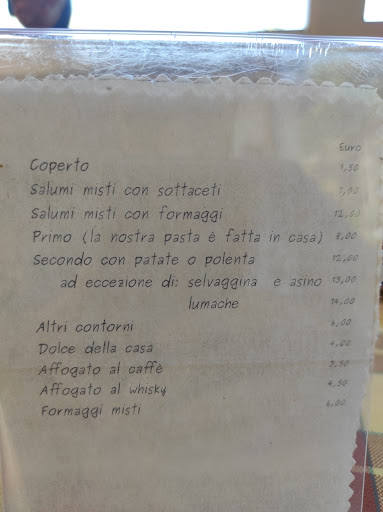 Euro
Coperto 1,50
Salumi misti con sottaceti 7,00
Salumi misti con formaggi 12,00
Primo (la nostra pasta è fatta in casa) 8,00
Secondo con patate o polenta 12,00
ad eccezione di: selvaggina e asino 13,00
lumache 14,00
Altri contorni 4,00
Dolce della casa 4,00
Affogato al caffè 3,50
Affogato al whisky 4,50
Formaggi misti 6,00